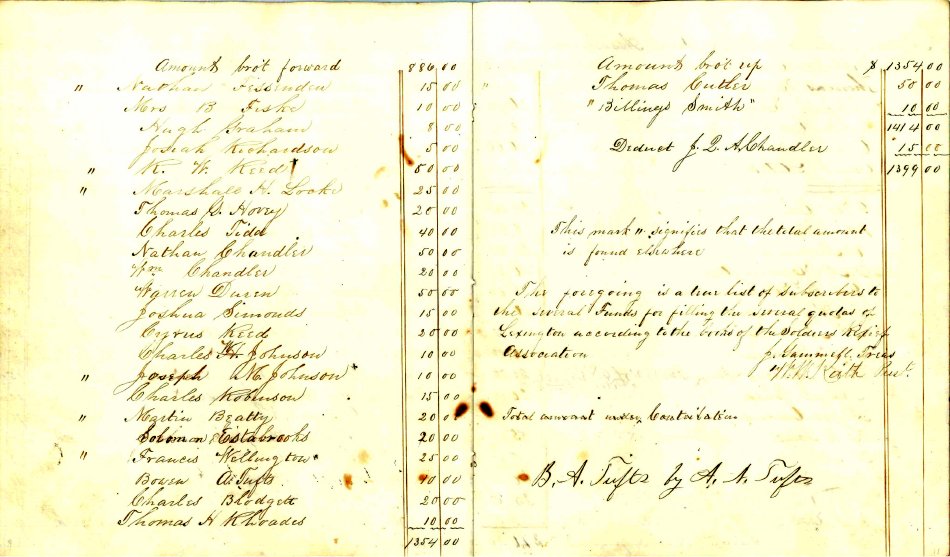 Amount brot forward 886 00
" Nathan Fessenden 15 00
Mrs B Fiske 10 00
Hugh Graham 8 00
Josiah Richardson 5 00
" K. W. Reed 50 00
" Marshall H. Locke 25 00
Thomas G. Hovey 20 00
Charles Tidd 40 00
Nathan Chandler 50 00
Wm Chandler 20 00
Warren Duren 50 00
Joshua Simonds 15 00
Cyrus Reed 20 00
Charles H. Johnson 10 00
" Joseph A M. Johnson 10 00
Charles Robinson 15 00
" Martin Beatty 20 00
Solomon Estabrooks 20 00
" Francis Wellington 25 00
Bowen A Tufts 40 00
Charles Blodgett 20 00
Thomas H Rhoades 10 00
1354 00
Amount brot up $ 1354 00
" Thomas Cutler 50 00
" Billings Smith " 10 00
1414 00
Deduct J. Q. A. Chandler 15 00
1399 00
This mark " signifies that the total amount
is found elsewhere
The foregoing is a true list of Subscribers to
the several Funds for filling the several quotas of
Lexington according to the books of the Soldiers Relief
Association J. Gammell, Treas
W. W. Keith
Total amount Contribution
B. A. Tufts by A. N. Tufts